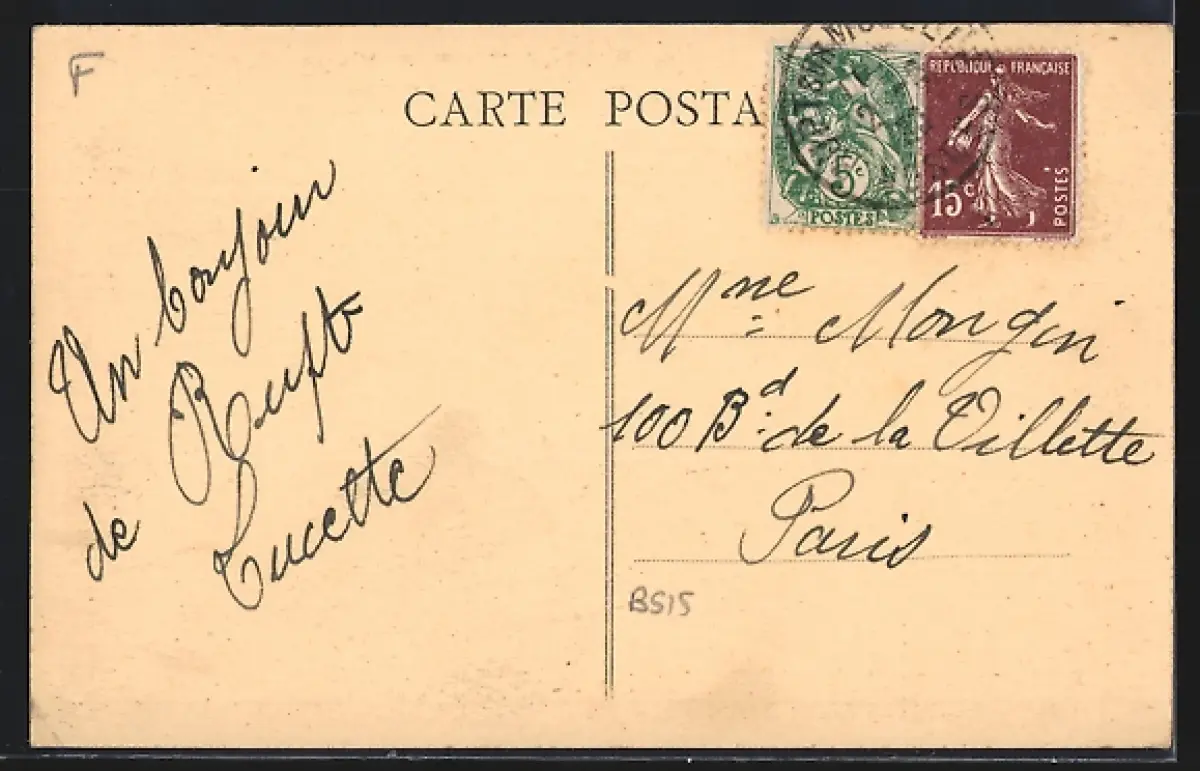 F
CARTE POSTA
REPUBLIQUE FRANÇAISE
5c
POSTES
15c
POSTES
Un bonjour
de
Lucette
Mme Mongin
100 Bd de la Villette
Paris
BS15